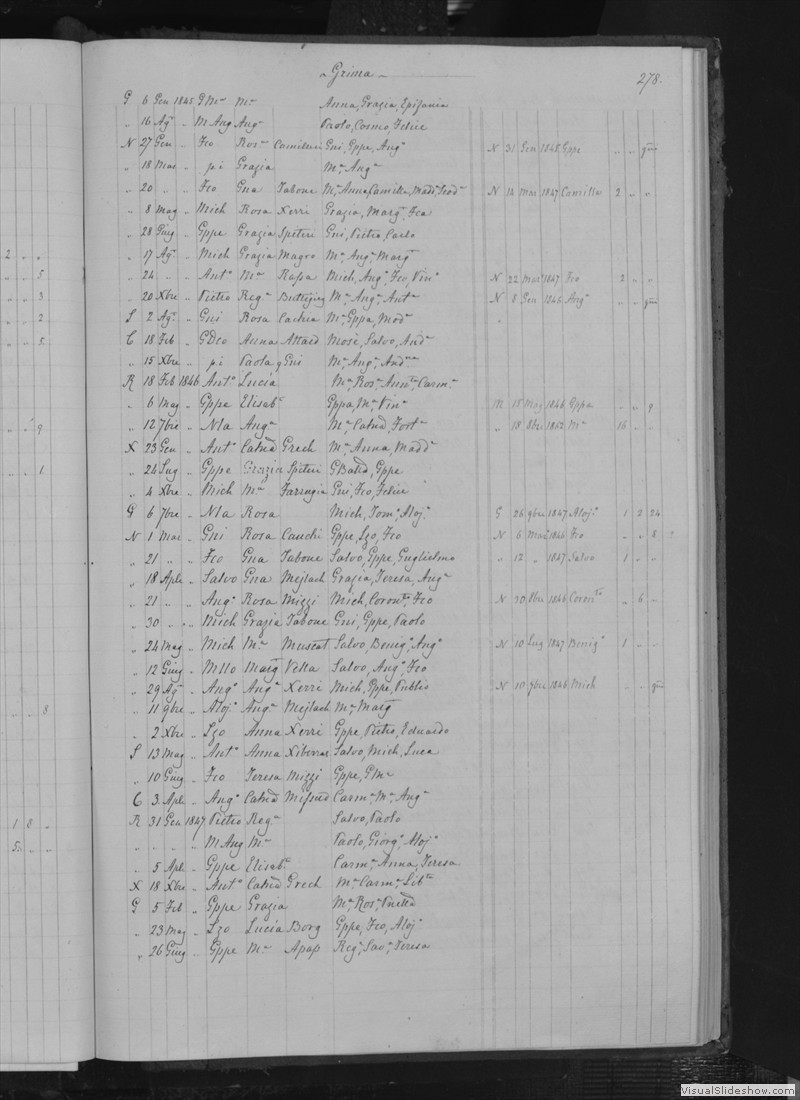 Grima
278.
G 6 Gen 1845 GMa Ma Anna, Grazia, Epifania
" 16 Agto " M Ang Anga Paolo, Cosmo, Felice
N 27 Gen " Fco Rosa Camilleri Gni, Gppe, Anga N 31 Gen 1845 Gppe " "
" 18 Mar " pi Grazia Ma Anga
" 20 " " Fco Gna Tabone Ma Anna, Camilla, Madda N 14 Mar 1847 Camilla 2 " "
" 8 Mag " Mich Rosa Xerri Grazia, Margta, Fca
" 28 Giug " Gppe Grazia Spiteri Gni, Pietro, Carlo
2 " " " 17 Agto " Mich Grazia Magro Ma Anga Margta
" " 5 " 24 " " Anto Ma Rapa Mich, Ango, Fco, Vino N 22 Mar 1847 Fco 2 " "
" " 3 " 20 Xbre " Pietro Rega Buttigieg Ma Anga Anta N 8 Gen 1846 Anga " "
" " 2 S 2 Agto " Gni Rosa Cachia Ma Gppa, Mada
" " 5 C 18 Feb " GDco Anna Attard Mosè, Salvo, Anda
" 15 Xbre " pi Paola, Gni Ma Anga Anda
R 18 Feb 1846 Anto Lucia Ma Rosa Annta Carma
" 6 Mag " Gppe Elisabta Gppa, Ma Vina M 18 Mag 1846 Gppa " " 9
" " 9 " 12 7bre " Nla Anga Ma Catna, Forta " 18 8bre 1862 Ma 16 " "
X 23 Gen " Anto Catna Grech Ma Anna, Madda
" " 1 " 24 Lug " Gppe Grazia Spiteri GBatta, Gppe
" 4 Xbre " Mich Ma Farrugia Gni, Fco, Felice
G 6 7bre " Nla Rosa Mich, Tomo, Alojo G 26 9bre 1847 Alojo 1 2 24
N 1 Mar " Gni Rosa Cauchi Gppe, Lzo, Fco N 6 Mar 1846 Fco " " 8
" 21 " " Fco Gna Tabone Salvo, Gppe, Guglielmo " 12 " 1847 Salvo 1 " "
" 18 Aple " Salvo Gna Mejlach Grazia, Teresa, Anga
" 21 " " Ango Rosa Mizzi Mich, Coronta, Fco N 30 8bre 1846 Coronta " 6 "
" 30 " " Mich Grazia Tabone Gni, Gppe, Paolo
" 24 Mag " Mich Ma Muscat Salvo, Benigo, Ango N 10 Lug 1847 Benigo 1 " "
" 12 Giug " Mllo Margta Vella Salvo, Ango, Fco
" 29 Agto " Ango Anga Xerri Mich, Gppe, Publio N 10 9bre 1846 Mich " "
" " 8 " 11 9bre " Alojo Anga Mejlach Ma Margta
" 2 Xbre " Lzo Anna Xerri Gppe, Pietro, Eduardo
S 13 Mag " Anto Anna Xiberras Salvo, Mich, Luca
" 10 Giug " Fco Teresa Mizzi Gppe, GMa
C 3 Aple " Ango Catna Mifsud Carma Ma Anga
1 8 " R 31 Gen 1847 Pietro Rega Salvo, Paolo
5 " " " " " " M Ang Ma Paolo, Giorgo, Alojo
" 5 Aple " Gppe Elisabta Carma Anna, Teresa
X 18 Xbre " Anto Catna Grech Ma Carma Liba
G 5 Feb " Gppe Grazia Ma Rosa
" 23 Mag " Lzo Lucia Borg Gppe, Fco, Alojo
" 26 Giug " Gppe Ma Apap Rega, Sava, Teresa
VisualSlideshow.com